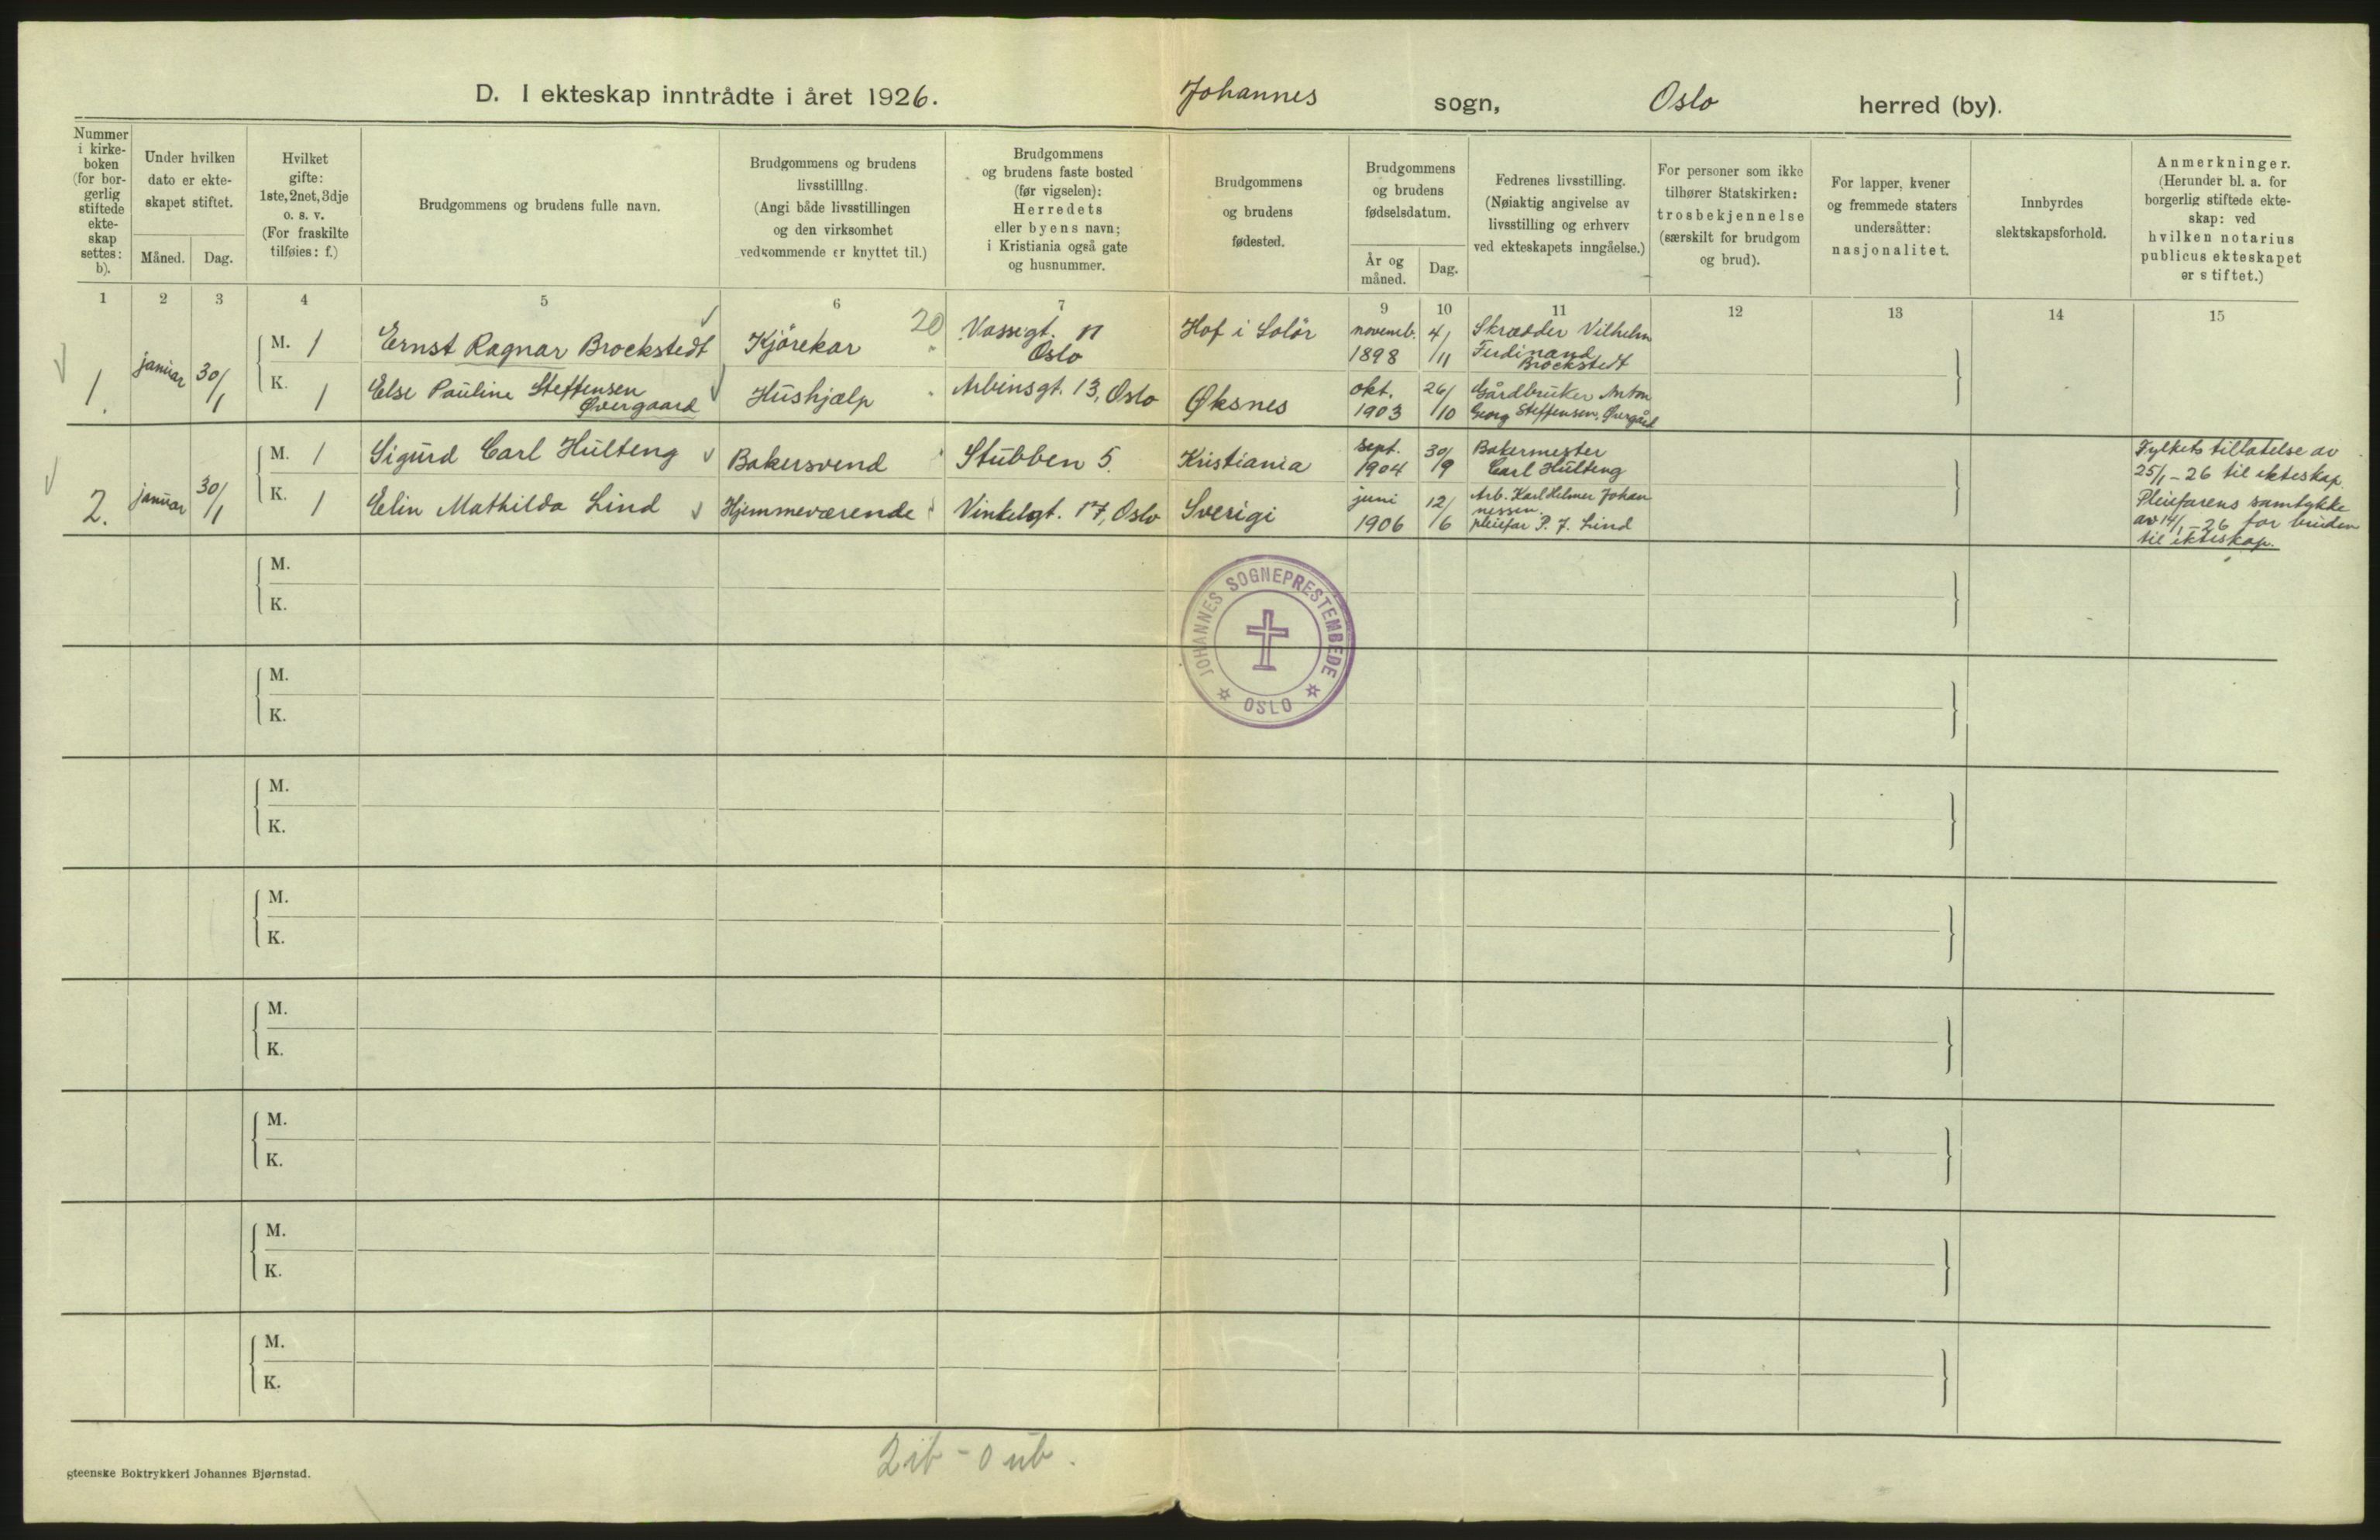 D. I ekteskap inntrådte i året 1926. Johannes sogn, Oslo herred (by).
Nummer
i kirke-
boken
(for bor-
gerlig
stiftede
ekte-
skap
settes:
b).
Under hvilken
dato er ekte-
skapet stiftet.
Måned. Dag.
Hvilket
gifte:
1ste, 2net, 3dje
o. s. v.
(For fraskilte
tilføies: f.)
Brudgommens og brudens fulle navn.
Brudgommens og brudens
livsstilling.
(Angi både livsstillingen
og den virksomhet
vedkommende er knyttet til.)
Brudgommens
og brudens faste bosted
(før vigselen):
Herredets
eller byens navn;
i Kristiania også gate
og husnummer.
Brudgommens
og brudens
fødested.
Brudgommens
og brudens
fødselsdatum.
År og
måned.
Dag.
Fedrenes livsstilling.
(Nøiaktig angivelse av
livsstilling og erhverv
ved ekteskapets inngåelse.)
For personer som ikke
tilhører Statskirken:
trosbekjennelse
(særskilt for brudgom
og brud).
For lapper, kvener
og fremmede staters
undersåtter:
nasjonalitet.
Innbyrdes
slektskapsforhold.
Anmerkninger.
(Herunder bl. a. for
borgerlig stiftede ekte-
skap: ved
hvilken notarius
publicus ekteskapet
er stiftet.)
1 2 3 4 5 6 7 9 10 11 12 13 14 15
1. januar 30/1
M. 1 Ernst Ragnar Brockstedt Kjörekar 20 Vossegt. Oslo Hof i Solör novemb. 1898 4/11 Skrædder Vilhelm
Ferdinand
Brockstedt
K. 1 Else Pauline Steffensen
Øvergaard Hushjælp Arbinsgt. 13, Oslo Øksnes okt. 1903 26/10 Gårdbruker Anton
Georg Steffensen, Øvergård
2. januar 30/1
M. 1 Sigurd Carl Hulteng Bakersvend Stubben 5. Kristiania sept. 1904 30/9 Bakermester
Carl Hulteng
K. 1 Elin Mathilda Lind Hjemmeværende Vinkelgt. 17, Oslo Sverigi juni 1906 12/6 Arb. Karl Helmer Johan
nessen.
pleiefar P. J. Lind
Fylkets tillatelse av
25/1-26 til ekteskap.
Pleiefarens samtykke
av 14/1-26 for bruden
til ekteskap.
M.
K.
JOHANNES SOGNEPRESTEMBEDE
OSLO
M.
K.
M.
K.
M.
K.
M.
K.
M.
K.
M.
K.
M.
K.
2 ib - 0 ub.
gteenske Boktrykkeri Johannes Bjørnstad.